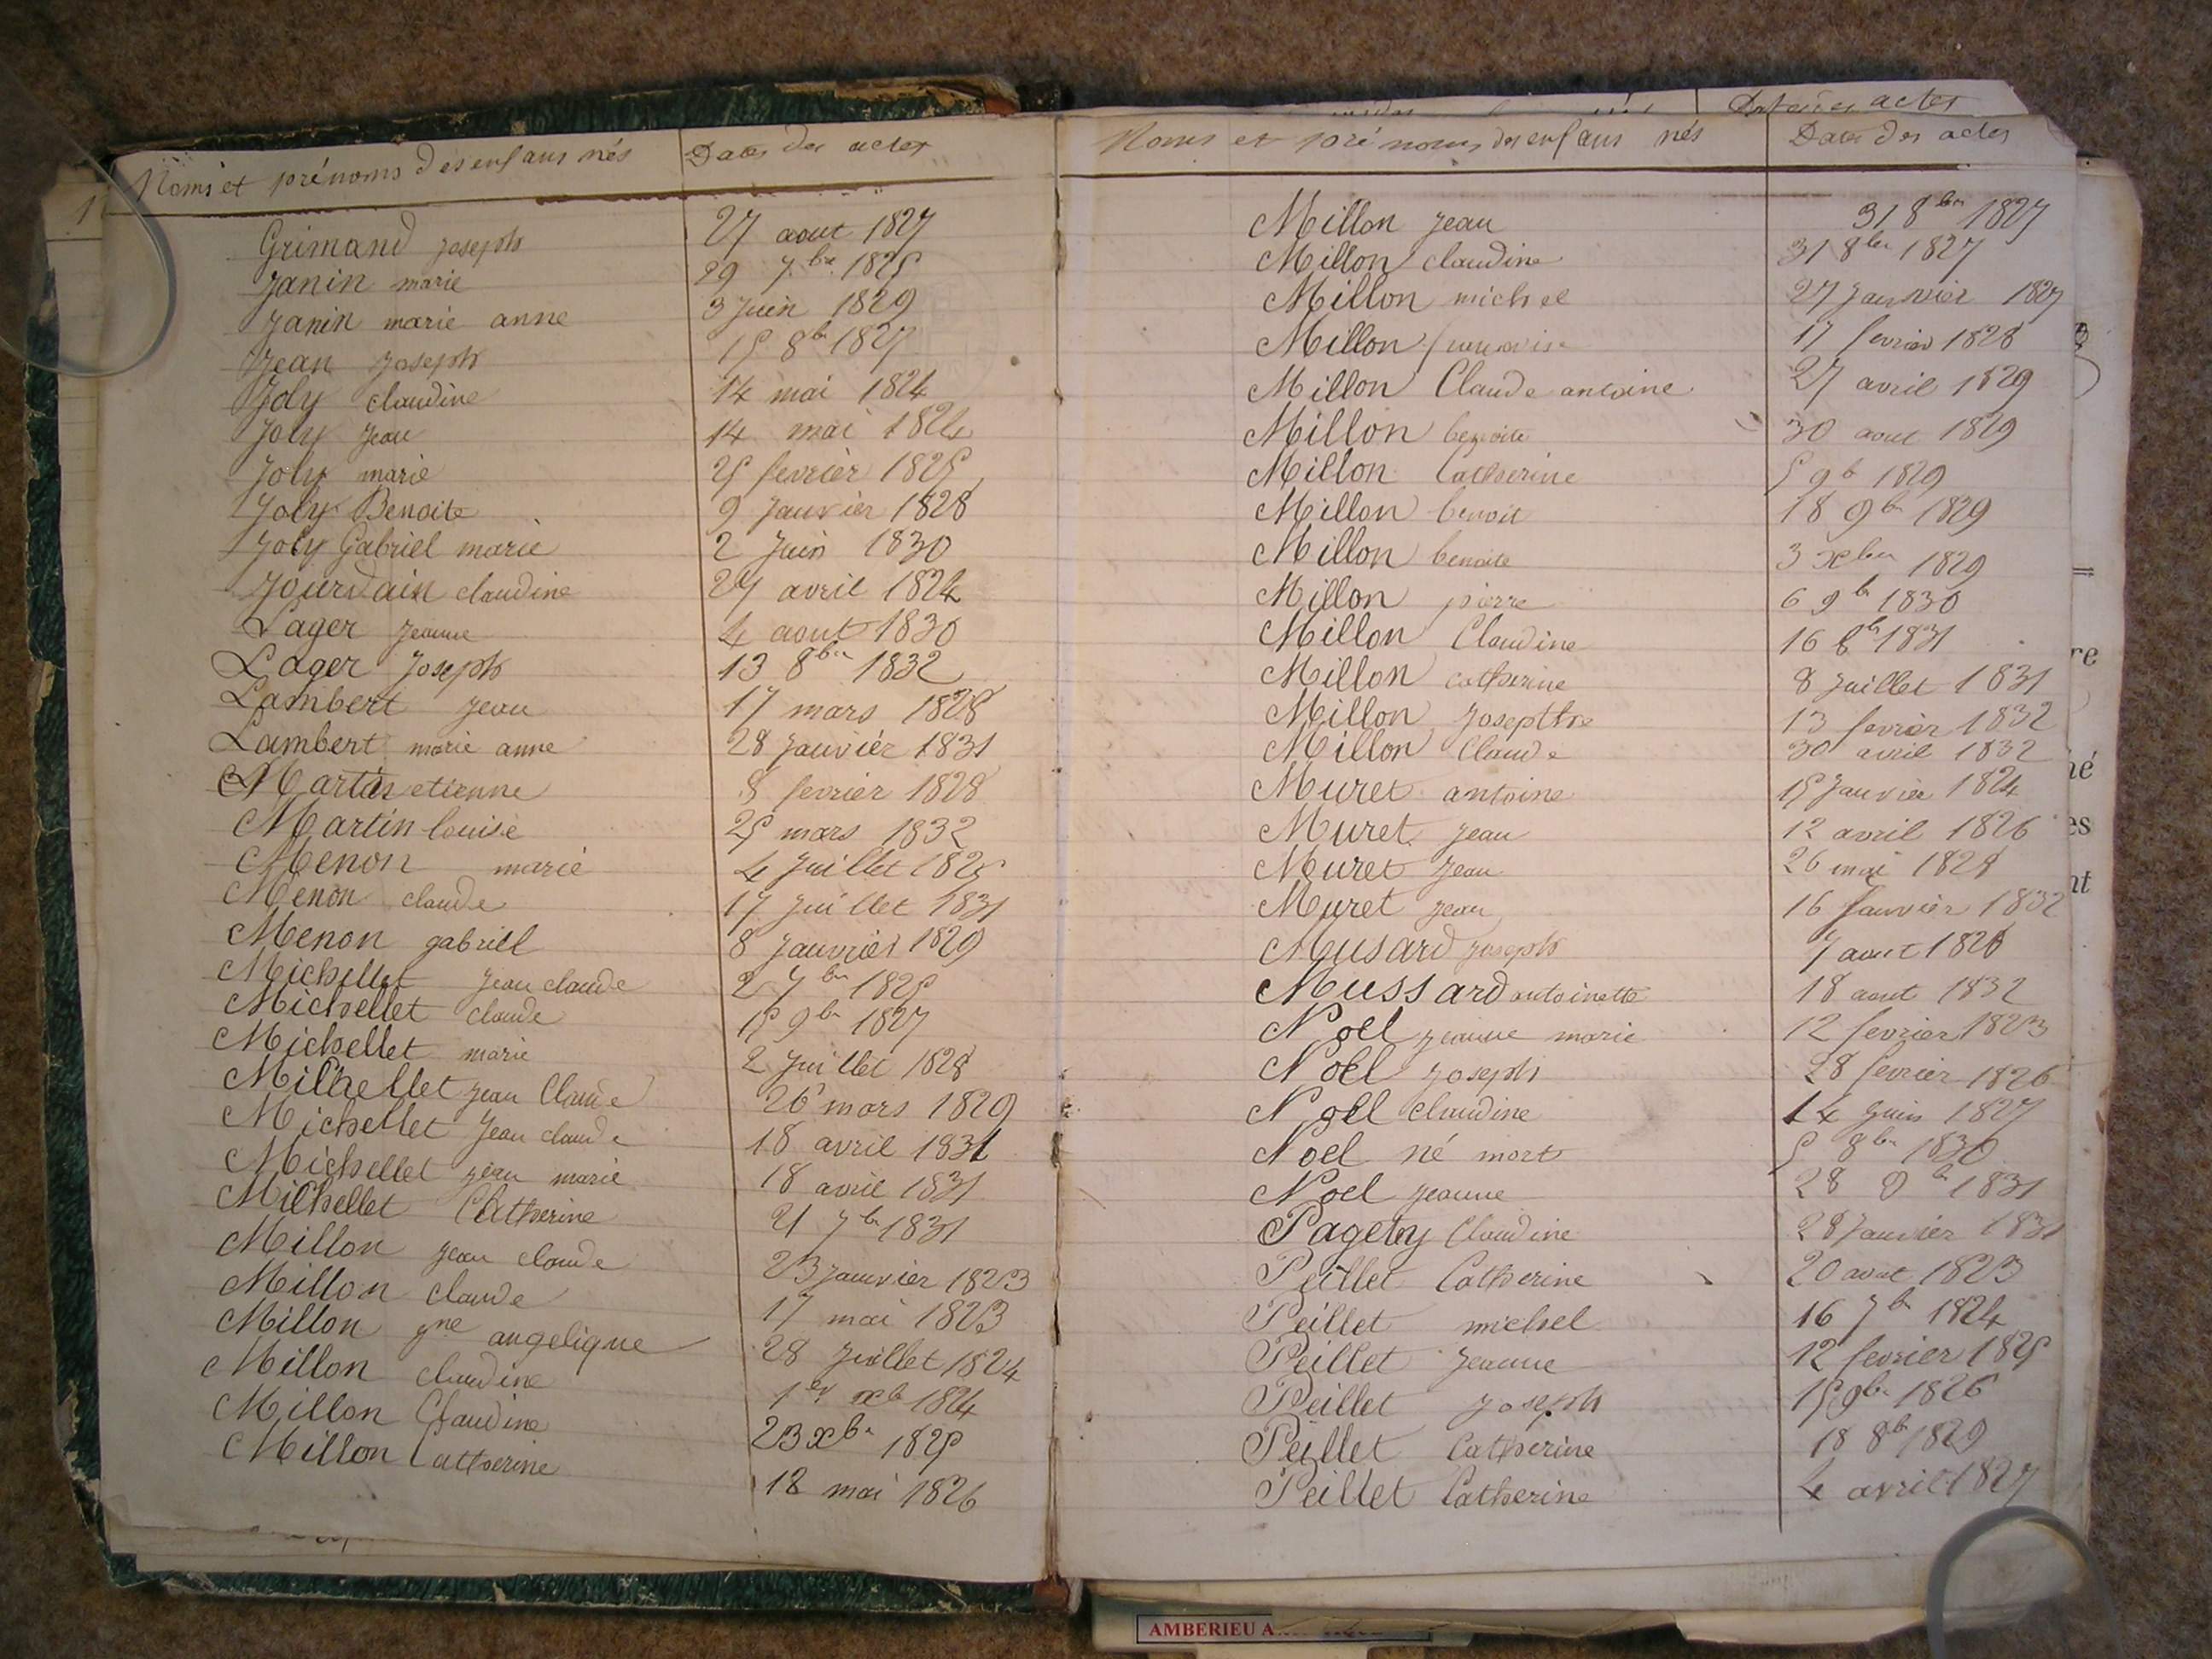 Noms et prénoms des enfans nés Dates des actes
Grimand joseph 27 aout 1827
Janin marie 29 7bre 1825
Janin marie anne 3 Juin 1829
Jean Joseph 15 8bre 1827
Joly claudine 14 mai 1824
Joly Jean 14 mai 1824
Joly marie 25 fevrier 1825
Joly Benoite 9 Janvier 1828
Joly Gabriel marie 2 Juin 1830
Jourdain claudine 27 avril 1824
Lager Jeanne 4 aout 1830
Lager Joseph 13 8bre 1832
Lambert Jean 17 mars 1828
Lambert marie anne 28 Janvier 1831
Martin etienne 8 fevrier 1828
Martin louise 25 mars 1832
Menon marie 4 Juillet 1825
Menon claude 17 Juillet 1831
Menon gabriel 8 Janvrier 1829
Michellet Jean claude 2 7bre 1825
Michellet claude 15 9bre 1827
Michellet marie 2 Juillet 1828
Milhellet Jean Claude 26 mars 1829
Michellet Jean claude 18 avril 1831
Michellet jean marie 18 avril 1831
Michellet Catherine 21 7bre 1831
Millon Jean claude 23 Janvier 1823
Millon claude 17 mai 1823
Millon jne angelique 28 Juillet 1824
Millon claudine 1er xb 1824
Millon Claudine 23 xbre 1825
Millon Catherine 18 mai 1826
Noms et prénoms des enfans nés Dates des actes
Millon Jean 31 8bre 1827
Millon claudine 31 8bre 1827
Millon michel 27 Janvier 1827
Millon 17 fevrier 1828
Millon Claude antoine 27 avril 1829
Millon benoite 30 aout 1829
Millon Catherine 5 9b 1829
Millon benoit 18 9bre 1829
Millon benoite 3 xbre 1829
Millon pierre 6 9b 1830
Millon Claudine 16 8b 1831
Millon catherine 8 Juillet 1831
Millon Josepthe 13 fevrier 1832
Millon Claude 30 avril 1832
Muret antoine 15 Janvier 1824
Muret Jean 12 avril 1826
Muret Jean 26 mai 1828
Muret Jean 16 Janvier 1832
Musard Joseph 7 aout 1826
Mussard antoinette 18 aout 1832
Noel jeanne marie 12 fevrier 1823
Noel Joseph 28 fevrier 1826
Noel Claudine 14 Juin 1827
Noel né mort 5 8bre 1830
Noel Jeanne 28 9b 1831
Pagety Claudine 28 Janvier 1831
Peillet Catherine 20 aout 1823
Peillet michel 16 7b 1824
Peillet Jeanne 12 fevrier 1825
Peillet Joseph 15 9bre 1826
Peillet Catherine 18 8b 1829
Peillet Catherine 4 avril 1827
Dates des actes
AMBERIEU